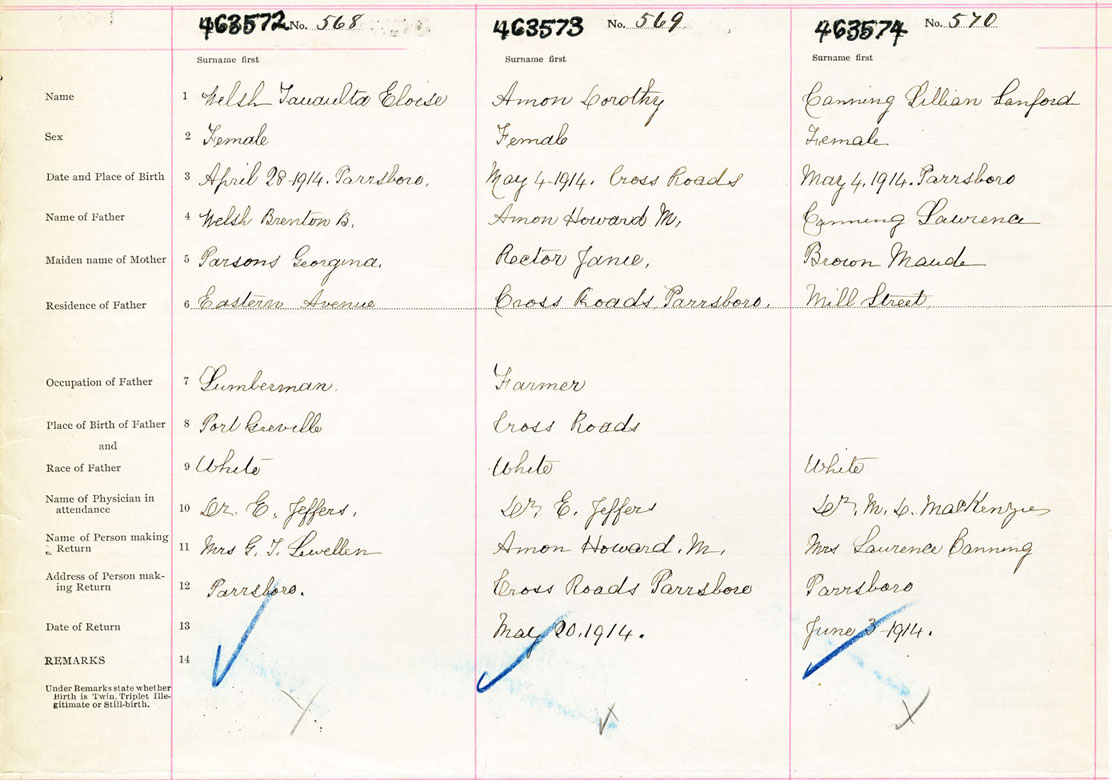 463572 No. 568 463573 No. 569 463574 No. 570
Surname first Surname first Surname first
Name 1 Welsh Eloise Amon Dorothy Canning Lillian Sanford
Sex 2 Female Female Female
Date and Place of Birth 3 April 28-1914. Parrsboro. May 4-1914. Cross Roads May 4, 1914. Parrsboro
Name of Father 4 Welsh Brenton B. Amon Howard M, Canning Lawrence
Maiden name of Mother 5 Parsons Georgina. Rector Janie, Brown Maude
Residence of Father 6 Eastern Avenue Cross Roads, Parrsboro. Mill Street.
Occupation of Father 7 Lumberman. Farmer
Place of Birth of Father 8 Port Greville Cross Roads
and
Race of Father 9 White White White
Name of Physician in
attendance 10 Dr. E. Jeffers. Dr. E. Jeffers Dr. M. D. MacKenzie
Name of Person making
Return 11 Mrs G. T. Lewellen Amon Howard. M. Mrs Laurence Canning
Address of Person mak-
ing Return 12 Parrsboro. Cross Roads Parrsboro Parrsboro
Date of Return 13 May 20. 1914. June 3-1914.
REMARKS 14
Under Remarks state whether
Birth is Twin. Triplet Ille-
gitimate or Still-birth.